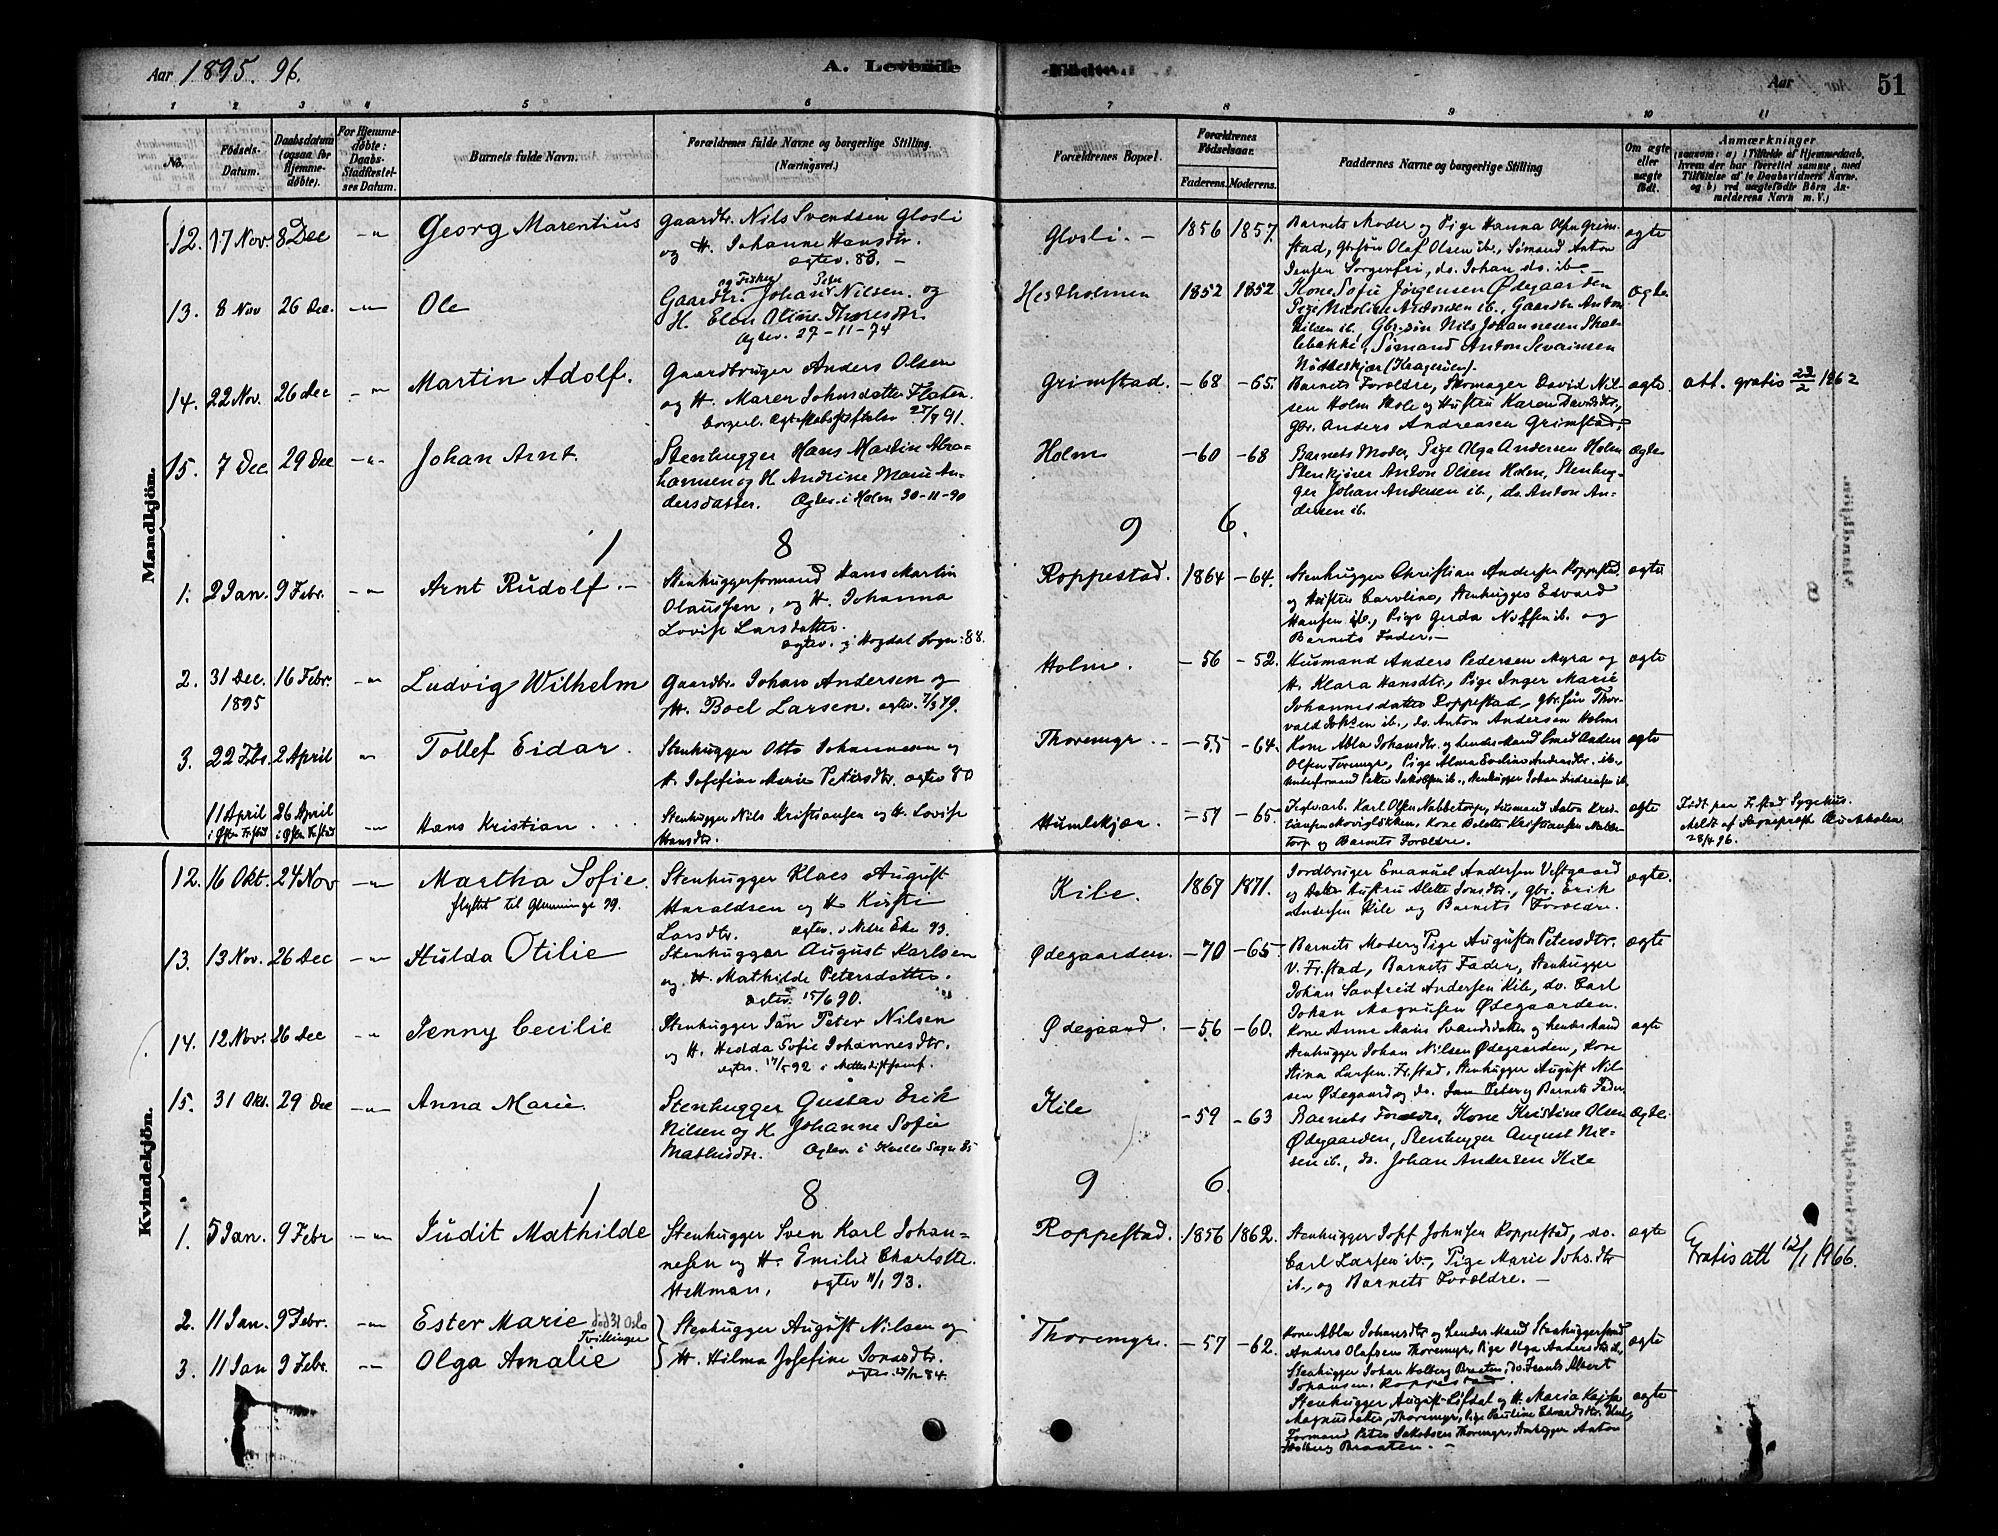 Aar 1895. 96.
A. Levende
Fødte.
Aar
51
1 2 3 4 5 6 7 8 9 10 11
No.
Fødsels-Datum.
Daabsdatum (ogsaa for Hjemmedøbte).
For Hjemmedøbte: Daabs-Stadfæstelses Datum.
Barnets fulde Navn.
Forældrenes fulde Navne og borgerlige Stilling. (Næringsvei.)
Forældrenes Bopæl.
Forældrenes Fødselsaar.
Faderens. Moderens.
Faddernes Navne og borgerlige Stilling
Om ægte eller uægte født.
Anmærkninger
(saasom: a) i Tilfælde af Hjemmedaab,
hvem der har forrettet samme, med
Tilføielse af to Daabsvidners Navne,
og b) ved uægtefødte Børn Anmelderens Navn m. V.)
Mandkjøn.
12. 17 Nov 8 Dec -"- Georg Marentius
Gaardbr. Nils Svendsen Glosli
og H. Johanne Hansdtr.
ægtev. 83. -
Glosli. - 1856 1857.
Barnets Moder og Pige Hanna Olsen Grim-
stad, Gbrsøn Olaf Olsen ib., Sømand Anton
Jensen Sorgenfri, do. Johan do. ib.
ægte
13. 8 Nov 26 Dec. -"- Ole
og Fisker Peter
Gaardbr. Johan Nilsen og
H. Elen Oline Thoresdtr.
Ægtev. 27-11-74
Hestholmen 1852 1852
Kone Sofie Jørgensen Ødegaarden
Pige Nicoline ib., Gaardbr Anton
Nilsen ib., Gbr.søn Nils Johannesen Skal-
lebakke, Sømand Anton
Ægte.
14. 22 Nov. 26 Dec -"- Martin Adolf.
Gaardbruger Anders Olsen
og H. Maren Johnsdatter Flaten.
borgerl. Ægteskabsstiftelse 91.
Grimstad. -68 -65.
Barnets Forældre, Skomager David Nil-
sen Holm Skole og Hustru Karen Davidsdtr.,
gbr. Anders Andreasen Grimstad.
ægte.
att. gratis 23/2 1962
15. 7 Dec 29 Dec -"- Johan Arnt
Stenhugger Hans Martin Abra-
hamsen og H. Andrine Marie An-
dersdatter. Ægtev. i Holm 30-11-90
Holm -60 -68
Barnets Moder, Pige Olga Andersen Holm
Stenkjører Anton Olsen Holm, Stenhug-
ger Johan Andersen ib., do. Anton An-
dersen ib.
Ægte
1 8 9 6.
1. 2 Jan. 9 Febr. -"- Arnt Rudolf. -
Stenhuggerformand Hans Martin
Olaussen, og H. Johanna
Lovise Larsdatter.
ægtev. i Hogdal Sogn: 88.
Roppestad. 1864 -64.
Stenhugger Christian Andersen Roppestad
og Hustru Caroline, Stenhugger Edvard
Hansen ib., Pige Gerda ib. og
Barnets Fader. -
ægte
2. 31 Dec. 1895 16 Febr. -"- Ludvig Wilhelm
Gaardbr. Johan Andersen og
H. Boel Larsen. ægtev. 79.
Holm. -56 -52.
Husmand Anders Pedersen Myra og
H. Klara Hansdtr., Pige Inger Marie
Johannesdatter Roppestad, gbr.søn Thor-
vald ib., do. Anton Andersen Holm
ægte
3. 22 Fbr. 2 April -"- Tollef Eidar.
Stenhugger Otto Johannesen og
H. Josefine Marie Petersdtr. ægtev 80
Thoremyr. - -55 -64.
Kone Abla Johansdtr. og hendes Mand Anders
Olsen Toremyr, Pige Alma Eveline ib.,
ægte
11 April 26 April -"- Hans Kristian
Stenhugger Nils Kristiansen og H. Lovise
Hansdtr.
Humlekjær. -57 -65.
Karl Olsen Nabbetorp, Sømand Anton Kris-
tiansen Kone Kristiansen Nabbe-
torp og Barnets Forældre.
ægte
Født paa Fr.stad Sygehus.
Meldt af Sognepræst
28/4 96.
Kvindekjøn.
12. 16 Okt. 24 Nov -"- Martha Sofie.
flyttet til Glemminge 99.
Stenhugger Klaes August
Haraldsen og H. Kirsti
Larsdtr. ægtev. i Nedre Eker 93.
Kile. 1867 1871.
Jordbruger Emanuel Andersen Vestgaard
og Hustru Alette Jonsdtr., gbr. Erik
Andersen Kile og Barnets Forældre.
ægte.
13. 13 Nov. 26 Dec -"- Hulda Otilie
Stenhugger August Karlsen
og H. Mathilde Petersdatter.
ægtev. 15/6 90.
Ødegaarden. -70 -65.
Barnets Moder, Pige Augusta Petersdtr.
v. Fr.stad, Barnets Fader, Stenhugger
Johan Sanfrid Andersen Kile, do. Carl
Johan Magnusen Ødegaarden.
ægte
14. 12 Nov. 26 Dec -"- Jenny Cecilie
Stenhugger Jan Peter Nilsen
og H. Hedda Sofie Johannesdtr.
Ødegaard. -56 -60.
Kone Anne Maria Svendsdatter og hendes Mand
Stenhugger Johan Nilsen Ødegaarden, Kone
Stina Larsen Fr.stad, Stenhugger August Nil-
sen Ødegaard og do. Jan Peter og Barnets Fader
ægte
15. 31 Okt. 29 Dec -"- Anna Marie.
Stenhugger Gustav Erik
Nilsen og H. Johanne Sofie
Mathisdtr. Ægtev. i Sogn 85
Kile -59 -63
Barnets Forældre, Kone Kristine Olsen
Ødegaarden, Stenhugger August Nil-
sen ib., do. Johan Andersen Kile
Ægte.
1 8 9 6.
1. 5 Jan. 9 Febr -"- Judit Mathilde
Stenhugger Sven Karl Johan-
nesen og H. Emilie Charlotte
Hekman. ægtev 11/1 93.
Roppestad. 1856 1862.
Stenhugger Johnsen Roppestad, do.
Carl Larsen ib., Pige Marie Johs.dtr
ib., og Barnets Forældre. -
ægte
Gratis att 12/1 1966.
2. 11 Jan. 9 Febr. -"- Ester Marie død 31 Oslo
Tvillinger
3. 11 Jan 9 Febr. -"- Olga Amalie
Stenhugger August Nilsen og
H. Hilma Josefine Jonasdtr.
Thoremyr. -57 -62.
Kone Abla Johansdtr og hendes Mand
Anders Olafsen Thoremyr, Pige Olga Andersdtr ib,
Stenhugger Johan Holberg Braaten, do. Frants Albert
Johansen, Roppestad.
ægte
Stenhugger August Löfdal og H. Maria Kajsa
Magnusdatter, Thoremyr, Pige Pauline Edvardsdtr.
Formand Peter Jakobsen Thoremyr, Stenhugger Anton
Holberg Braaten. -
ægte